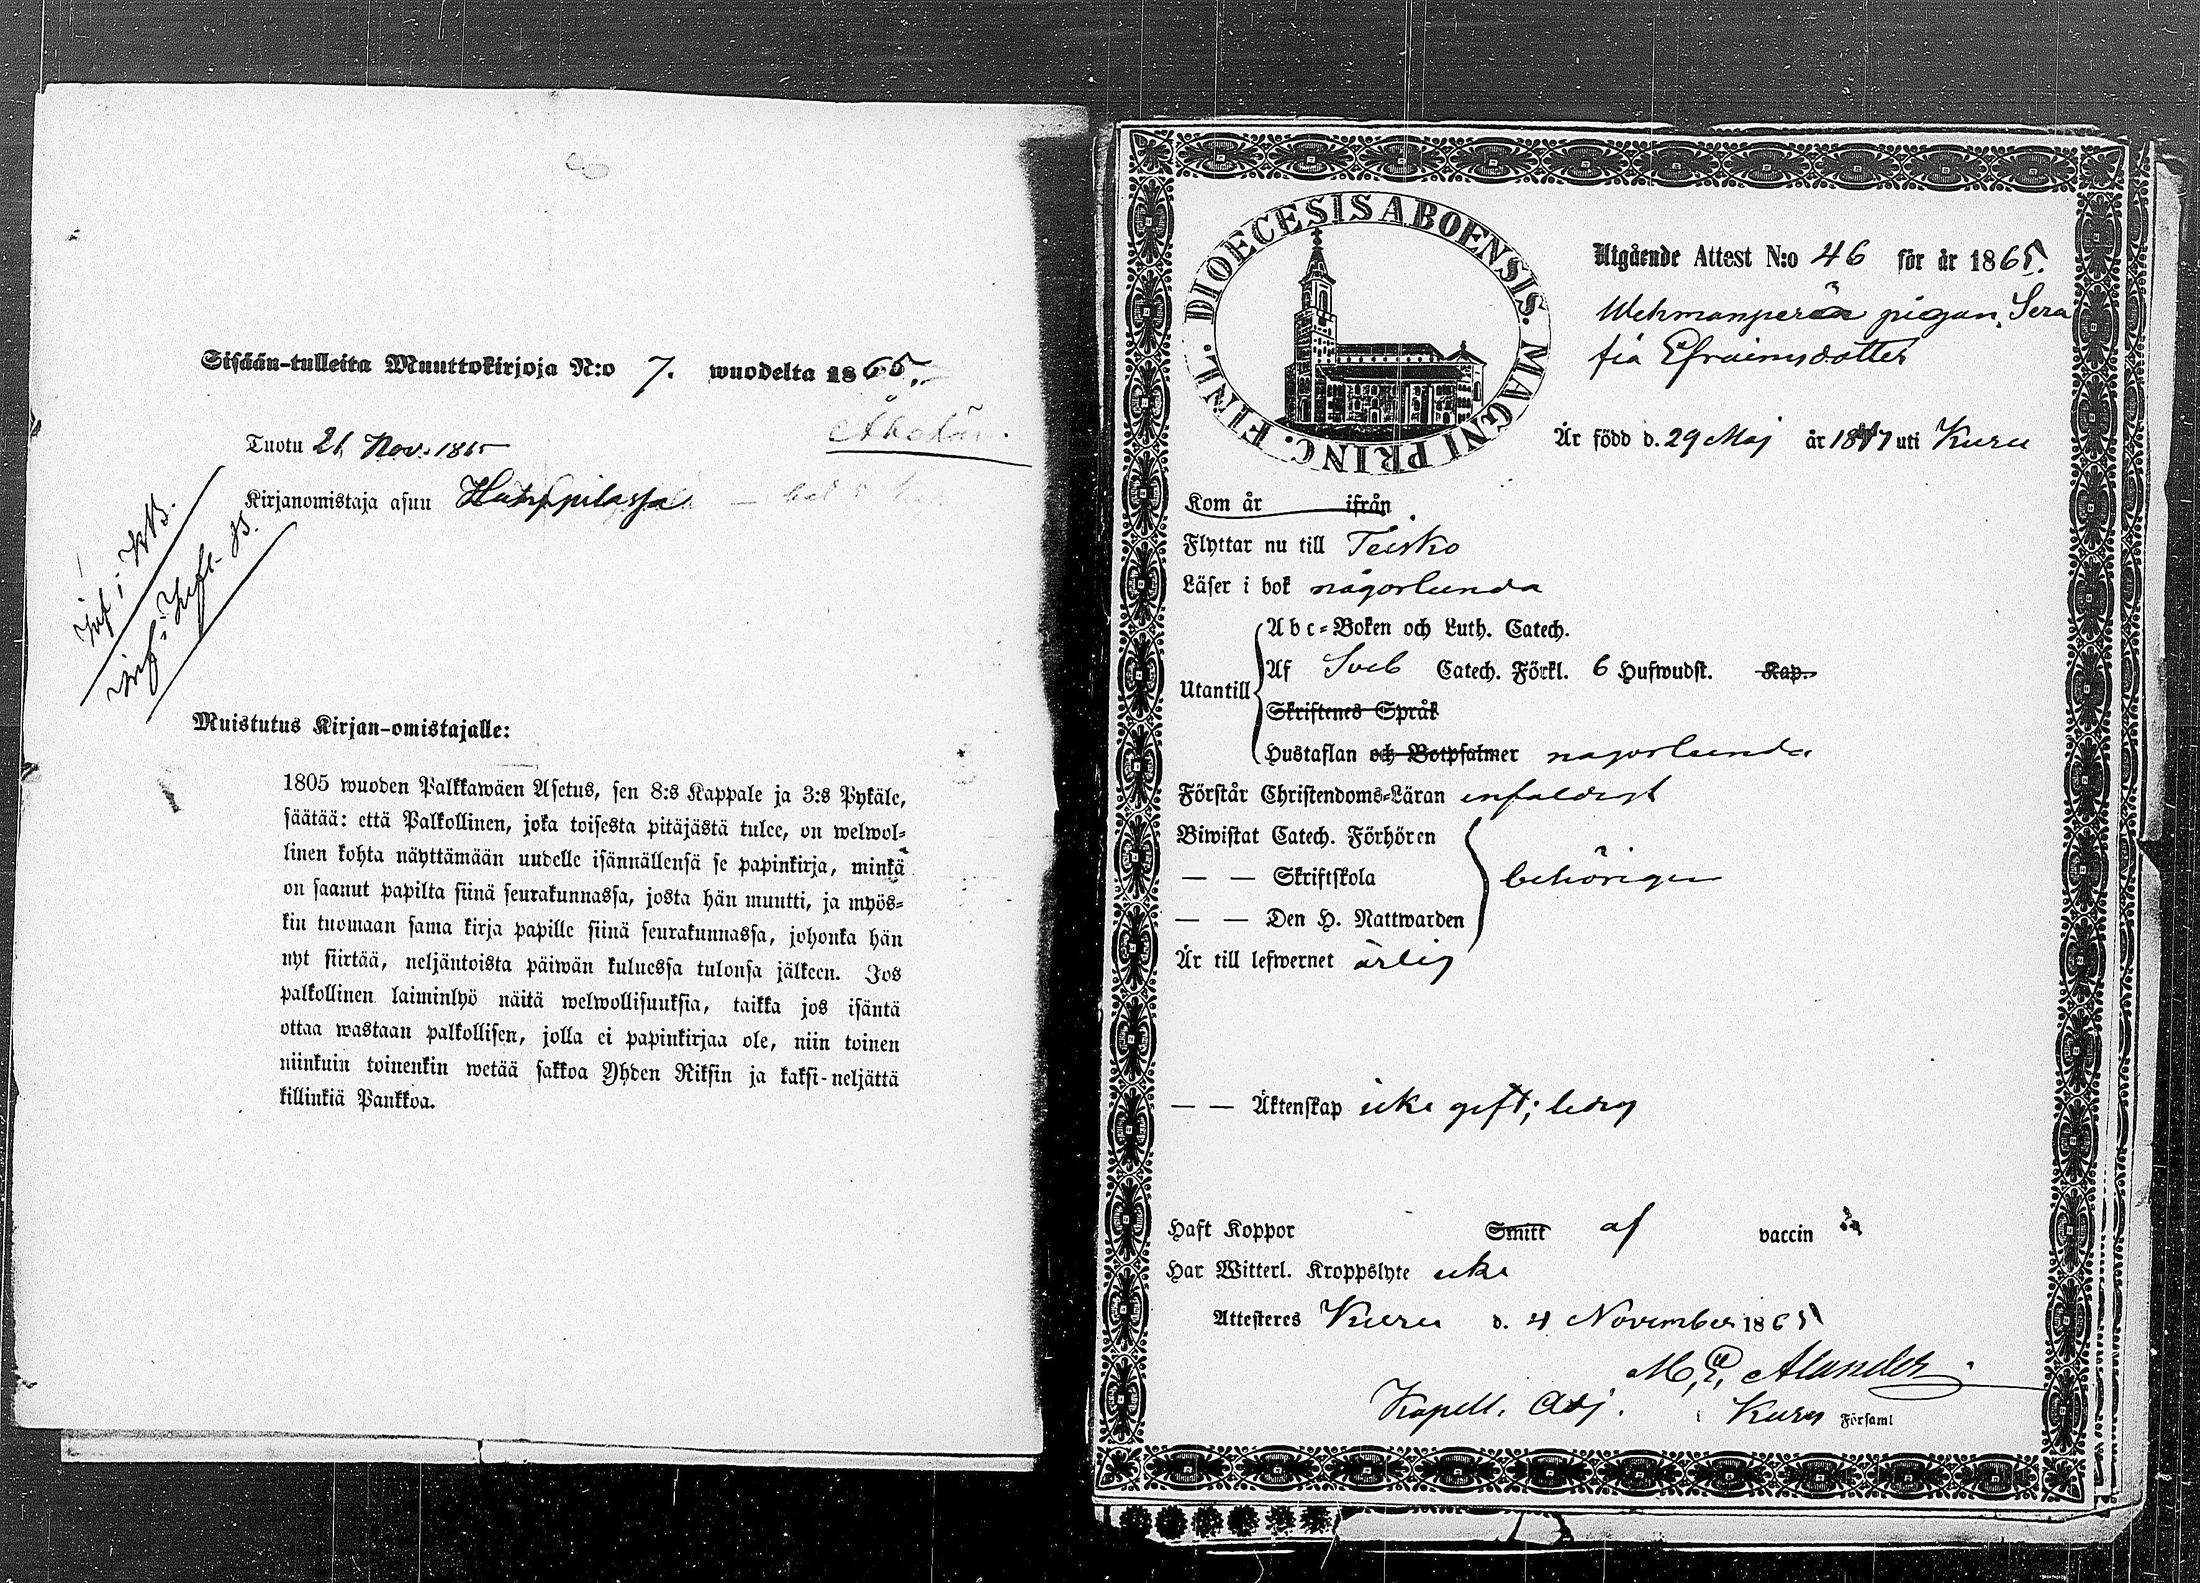 Sisään-tulleita Muuttokirjoja N:o 7. wuodelta 1865.
Tuotu 21 Nov. 1865
Kirjanomistaja asuu
inf. i KB.
Muistutus Kirjan-omistajalle:
1805 wuoden Palkkawäen Asetus, sen 8:s Kappale ja 3:s Pykäle,
säätää: että Palkollinen, joka toisesta pitäjästä tulee, on welwol-
linen kohta näyttämään uudelle isännällensä se papinkirja, minkä
on saanut papilta siinä seurakunnassa, josta hän muutti, ja myös-
kin tuomaan sama kirja papille siinä seurakunnassa, johonka hän
nyt siirtää, neljäntoista päiwän kuluessa tulonsa jälkeen. Jos
palkollinen laiminlyö näitä welwollisuuksia, taikka jos isäntä
ottaa wastaan palkollisen, jolla ei papinkirjaa ole, niin toinen
niinkuin toinenkin wetää sakkoa Yhden Riksin ja kaksi-neljättä
killinkiä Pankkoa.
DIOECESIS ABOENSIS. MAGNI PRINC. FINL.
Utgående Attest N:o 46 för år 1865.
Wehmanperä pigan Sera
fia Efraimsdotter
Är född d. 29 Maj år 1847 uti Kuru
Kom år ifrån
Flyttar nu till Teisko
Läser i bok någorlunda
Utantill
Abc-Boken och Luth. Catech.
Af Sveb Catech. Förkl. 6 Hufwudst. Kap.
Skriftenes Språk
Hustaflan och Botpsalmer någorlunda
Förstår Christendoms-Läran enfaldigt
Biwistat Catech. Förhören
— — Skriftskola
behörigen
— — Den H. Nattwarden
Är till lefwernet ärlig
— — Äktenskap icke gift; ledig
Haft Koppor Smitt af vaccin
Har Witterl. Kroppslyte icke
Attesteres Kuru d. 4 November 1865
M. E. Alander
Kapell. Adj. i Kuru Församl